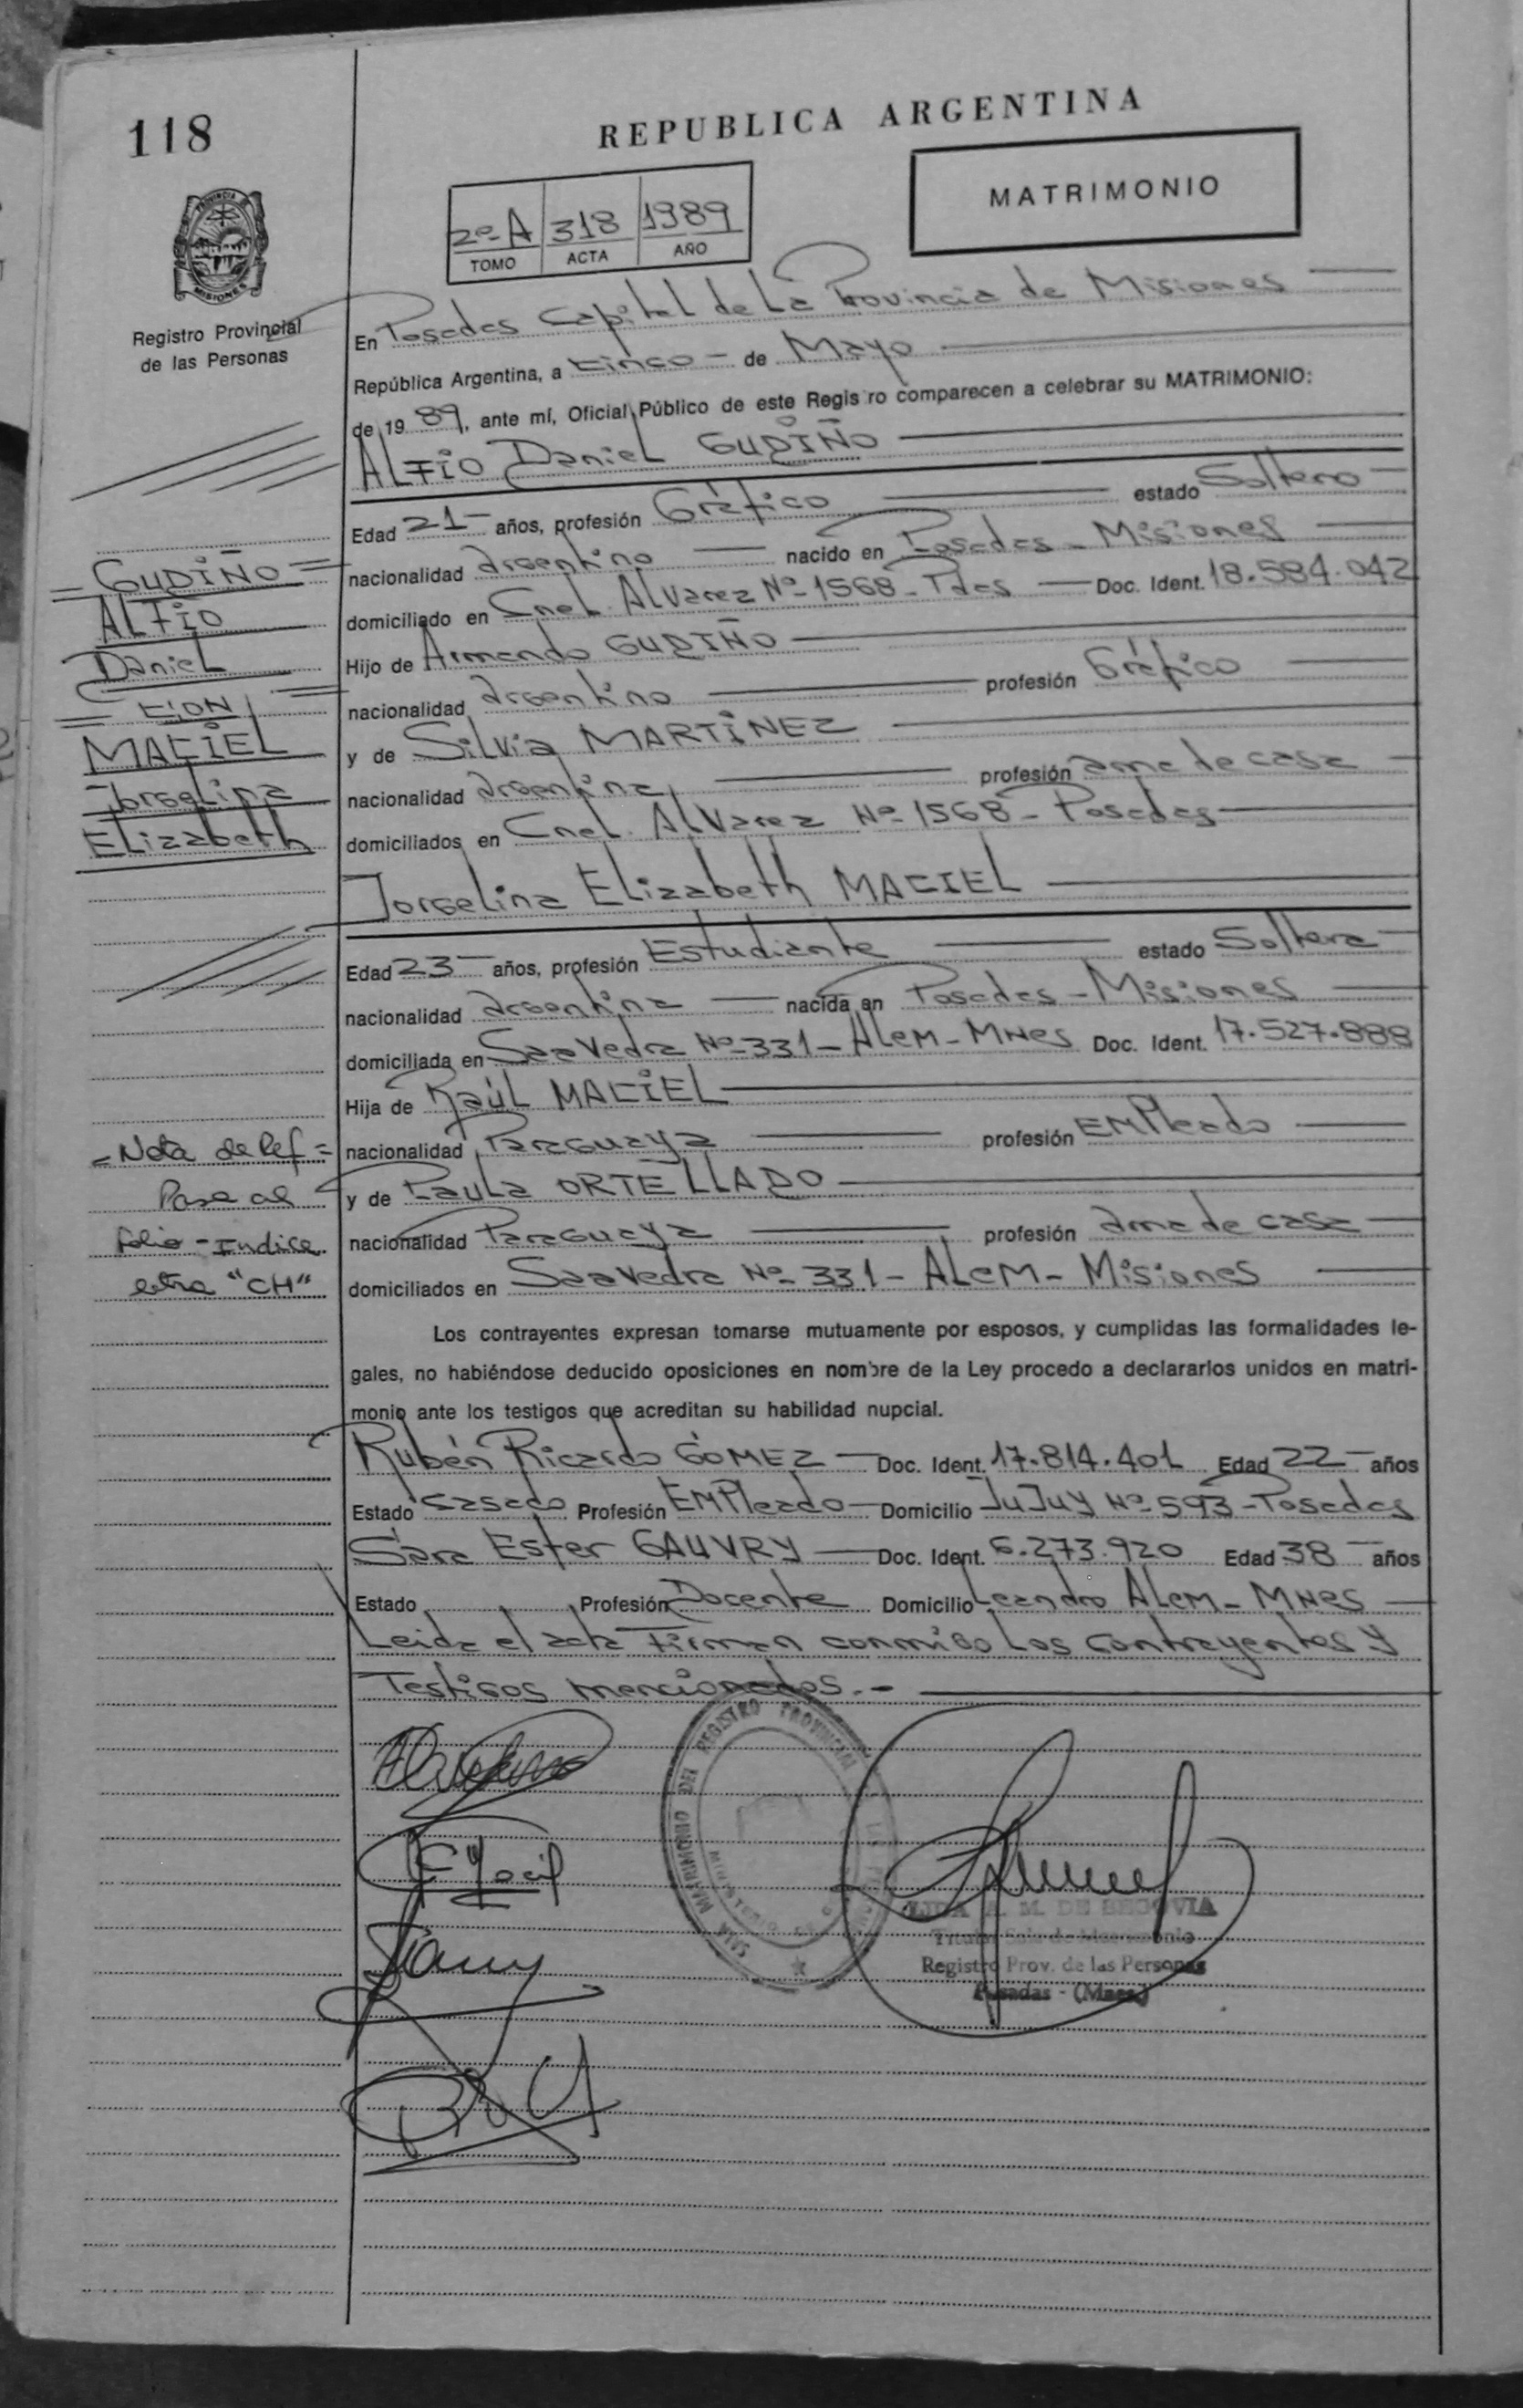 118
REPUBLICA ARGENTINA
MATRIMONIO
2º A 318 1989
TOMO ACTA AÑO
PROVINCIA DE
MISIONES
Registro Provincial
de las Personas
En Posadas Capital de La Provincia de Misiones
República Argentina, a cinco - de Mayo
de 19 89, ante mí, Oficial Público de este Registro comparecen a celebrar su MATRIMONIO:
ALFIO Daniel GUDIÑO
Edad 21 - años, profesión Gráfico estado Soltero
nacionalidad argentino nacido en Posadas - Misiones
domiciliado en Cnel. Alvarez Nº 1568 - Pdas Doc. Ident. 18.584.042
Hijo de Armando GUDIÑO
nacionalidad argentino profesión Gráfico
y de Silvia MARTINEZ
nacionalidad argentina profesión ama de casa
domiciliados en Cnel. Alvarez Nº 1568 - Posadas
Jorgelina Elizabeth MACIEL
Edad 23 - años, profesión Estudiante estado Soltera
nacionalidad argentina nacida en Posadas - Misiones
domiciliada en Saavedra Nº 331 - Alem - Mnes Doc. Ident. 17.527.888
Hija de Raúl MACIEL
nacionalidad Paraguaya profesión Empleado
y de Paula ORTELLADO
nacionalidad Paraguaya profesión ama de casa
domiciliados en Saavedra Nº 331 - Alem - Misiones
Los contrayentes expresan tomarse mutuamente por esposos, y cumplidas las formalidades le-
gales, no habiéndose deducido oposiciones en nombre de la Ley procedo a declararlos unidos en matri-
monio ante los testigos que acreditan su habilidad nupcial.
Rubén Ricardo GOMEZ - Doc. Ident. 17.814.401 Edad 22 - años
Estado casado Profesión Empleado - Domicilio Jujuy Nº 593 - Posadas
Sara Ester GAUVRY - Doc. Ident. 6.273.920 Edad 38 - años
Estado Profesión Docente Domicilio Leandro Alem - Mnes
Leida el acta Firman conmigo Los contrayentes y
Testigos mencionados.-
= GUDIÑO =
ALFIO
Daniel
= CON =
MACIEL
Jorgelina
Elizabeth
= Nota de Ref =
Pasa al
folio - Indice
letra "CH"
SALA MATRIMONIO DEL REGISTRO PROVINCIAL
LIDA A. M. DE SEGOVIA
Titular Sala de Matrimonio
Registro Prov. de las Personas
Posadas - (Mnes.)